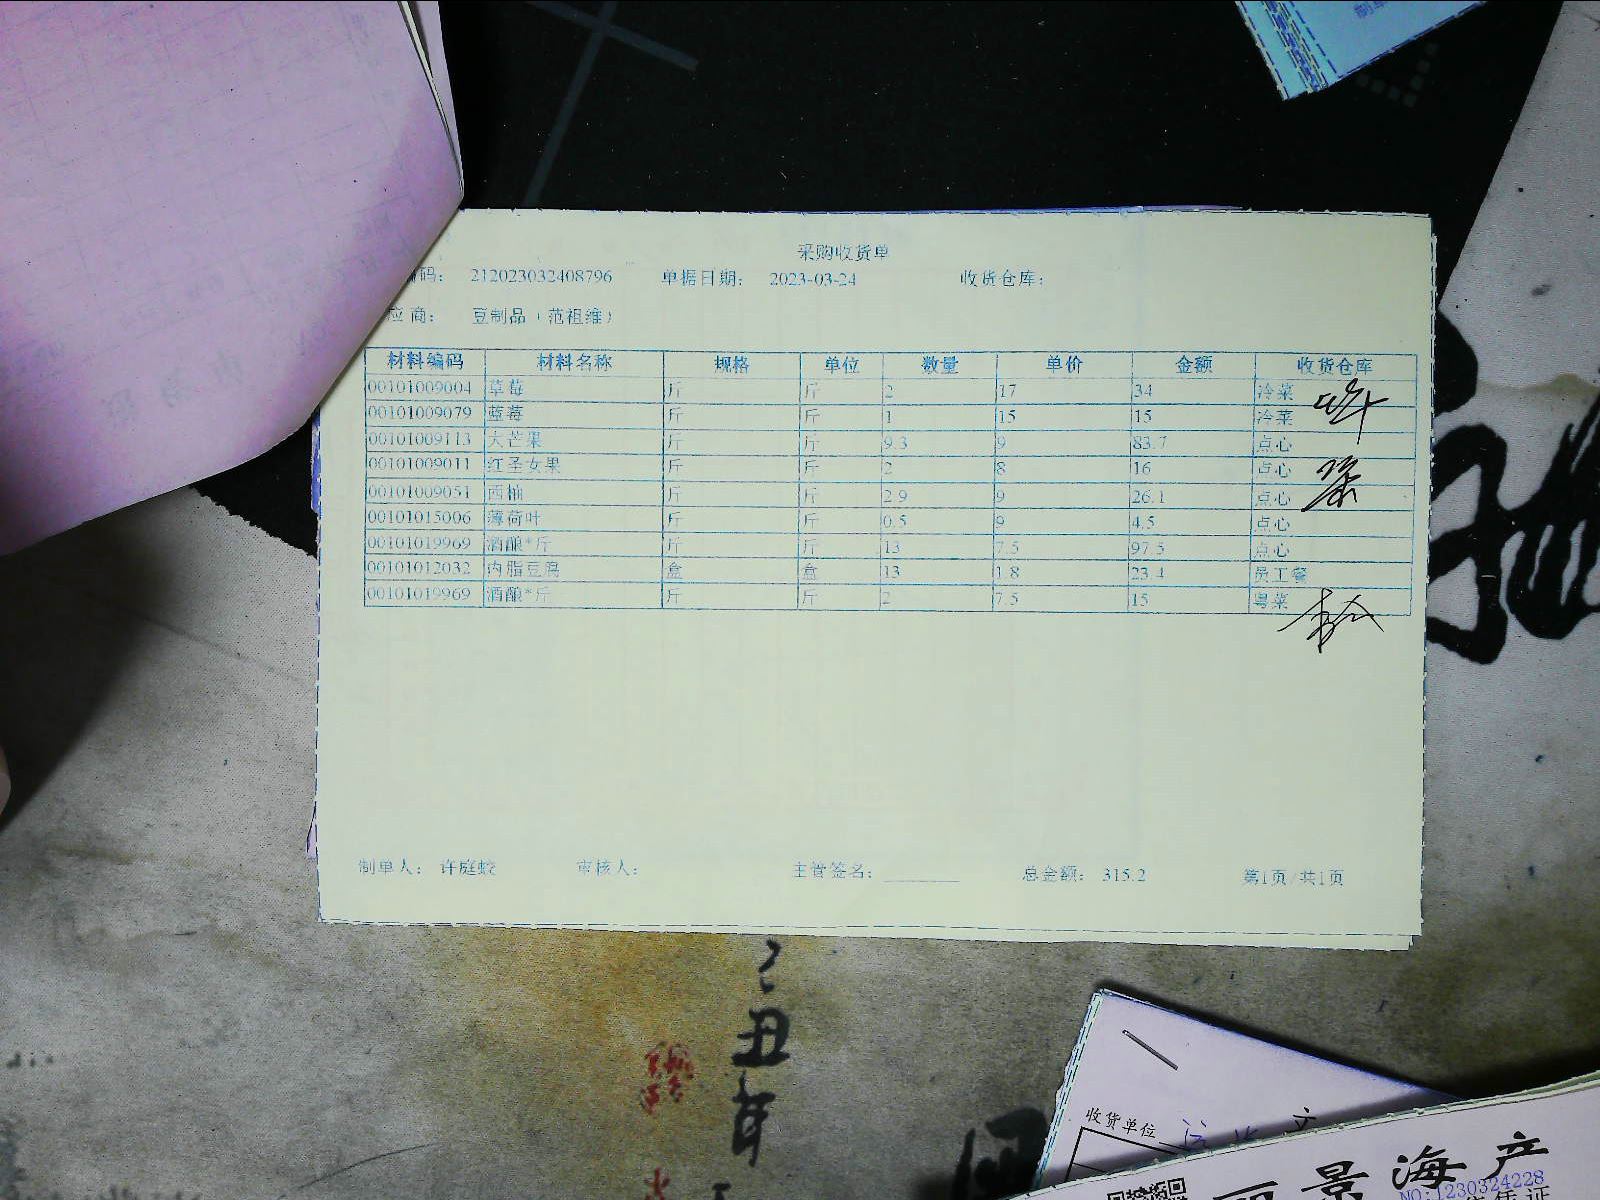 采购收货单
码： 212023032408796 单据日期： 2023-03-24 收货仓库：
应商： 豆制品（范祖维）
材料编码 材料名称 规格 单位 数量 单价 金额 收货仓库
00101009004 草莓 斤 斤 2 17 34 冷菜
00101009079 蓝莓 斤 斤 1 15 15 冷菜
00101009113 大芒果 斤 斤 9.3 9 83.7 点心
00101009011 红圣女果 斤 斤 2 8 16 点心
00101009051 西柚 斤 斤 2.9 9 26.1 点心
00101015006 薄荷叶 斤 斤 0.5 9 4.5 点心
00101019969 酒酿*斤 斤 斤 13 7.5 97.5 点心
00101012032 内脂豆腐 盒 盒 13 1.8 23.4 员工餐
00101019969 酒酿*斤 斤 斤 2 7.5 15 粤菜
制单人： 许庭蛟 审核人： 主管签名： 总金额： 315.2 第1页/共1页
丑年
收货单位
景海产
NO:1230324228